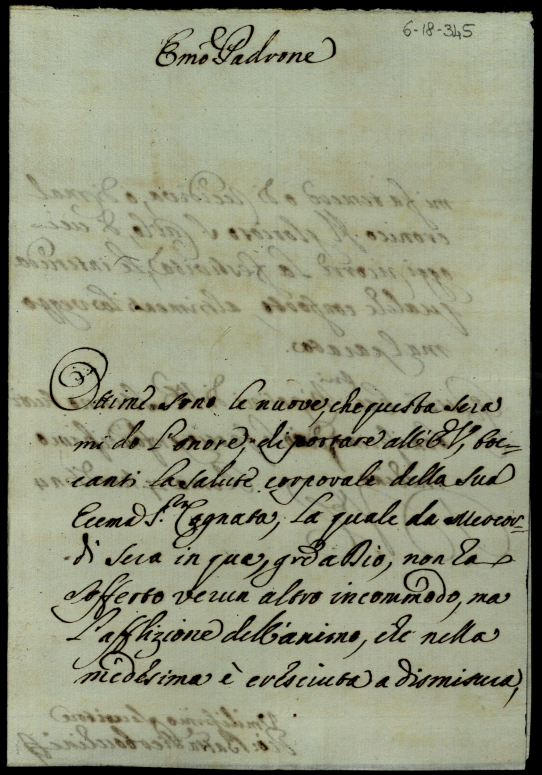 6-18-345
Emo Padrone
Ottime sono le nuove, che questa sera
mi do l'onore, di portare all'E.V., toc-
canti la salute corporale della sua
Ecema Sra Cognata, la quale da Mercor-
di sera in qua, grã a Dio, non ha
sofferto verun altro incommodo, ma
l'afflizione dell'animo, che nella
medesima è cresciuta a dismisura,